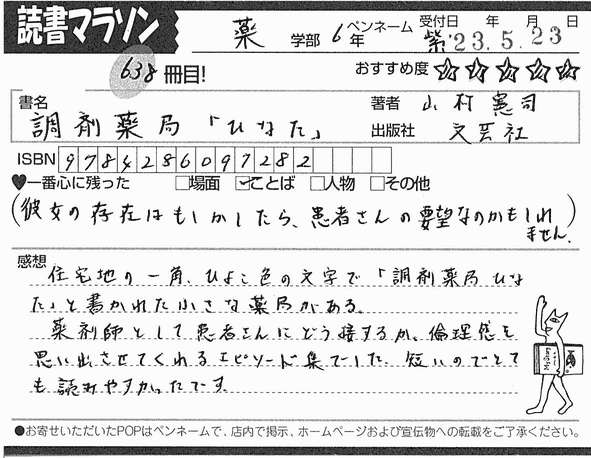 読書マラソン
薬 学部 6年 ペンネーム 紫 受付日 '23年 5月 23日
638冊目!
おすすめ度 ☆☆☆☆☆
書名 調剤薬局「ひなた」
著者 山村憲司
出版社 文芸社
ISBN 9784286097282
♥一番心に残った □場面 ☑ことば □人物 □その他
(彼女の存在はもしかしたら、患者さんの要望なのかもしれ
ません。)
感想
住宅地の一角、ひよこ色の文字で「調剤薬局ひな
た」と書かれた小さな薬局がある。
薬剤師として患者さんにどう接するか。倫理感を
思い出させてくれるエピソード集でした。短いのでとて
も読みやすかったです。
●お寄せいただいたPOPはペンネームで、店内で掲示、ホームページおよび宣伝物への転載をご了承ください。